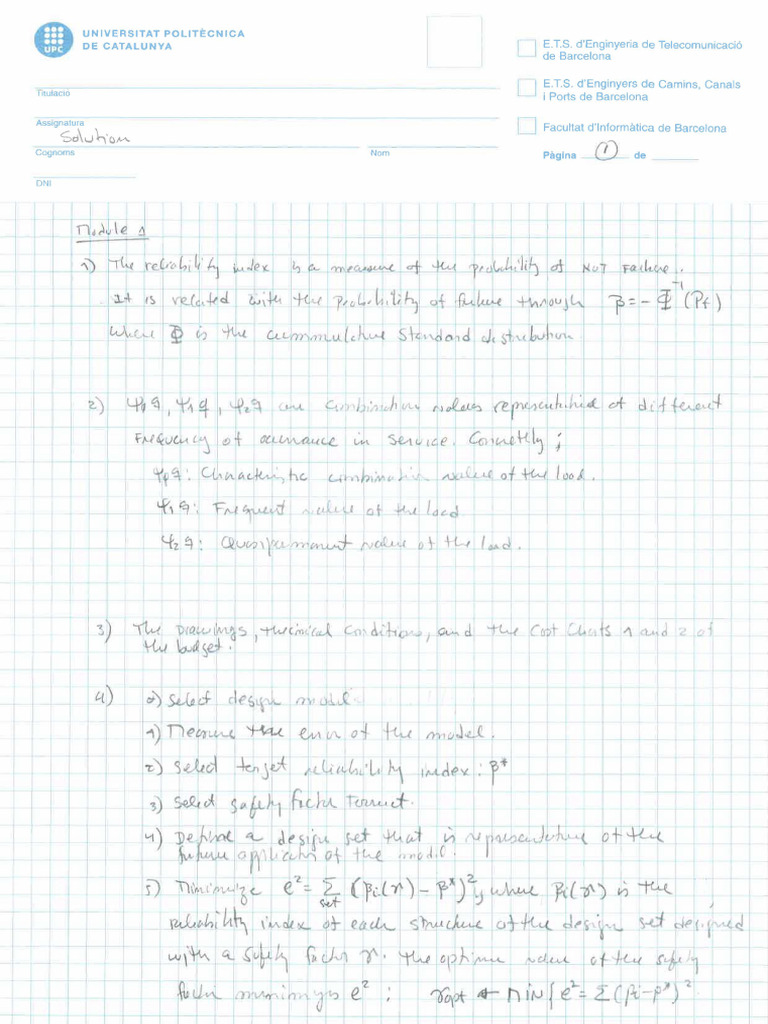 UNIVERSITAT POLITÈCNICA
DE CATALUNYA
UPC
E.T.S. d'Enginyeria de Telecomunicació
de Barcelona
E.T.S. d'Enginyers de Camins, Canals
i Ports de Barcelona
Facultat d'Informàtica de Barcelona
Pàgina 1 de
Titulació
Assignatura
Solution
Cognoms Nom
DNI
Module 1
1) The reliability index is a measure of the probability of NOT Failure.
It is related with the probability of failure through β = - Φ⁻¹ (Pf)
where Φ is the cummulative Standard distribution
2) Ψ0q, Ψ1q, Ψ2q are combination values representative of different
Frequency of occurrance in service. Concretely;
Ψ0q: Characteristic combination value of the load.
Ψ1q: Frequent value of the load
Ψ2q: Quasipermanent value of the load.
3) The Drawings, thecinical conditions, and the Cost Charts 1 and 2 of
the budget.
4) 0) Select design model
1) Measure the error of the model.
2) Select target reliability index: β*
3) Select safety factor Format.
4) Define a design set that is representative of the
future application of the model.
5) Minimize e² = Σ set (βi(γ) - β*)², where βi(γ) is the
reliability index of each structure of the design set designed
with a safety factor γ. The optimum value of the safety
factor minimizes e² : γopt ← MIN{e² = Σ(βi-β*)²